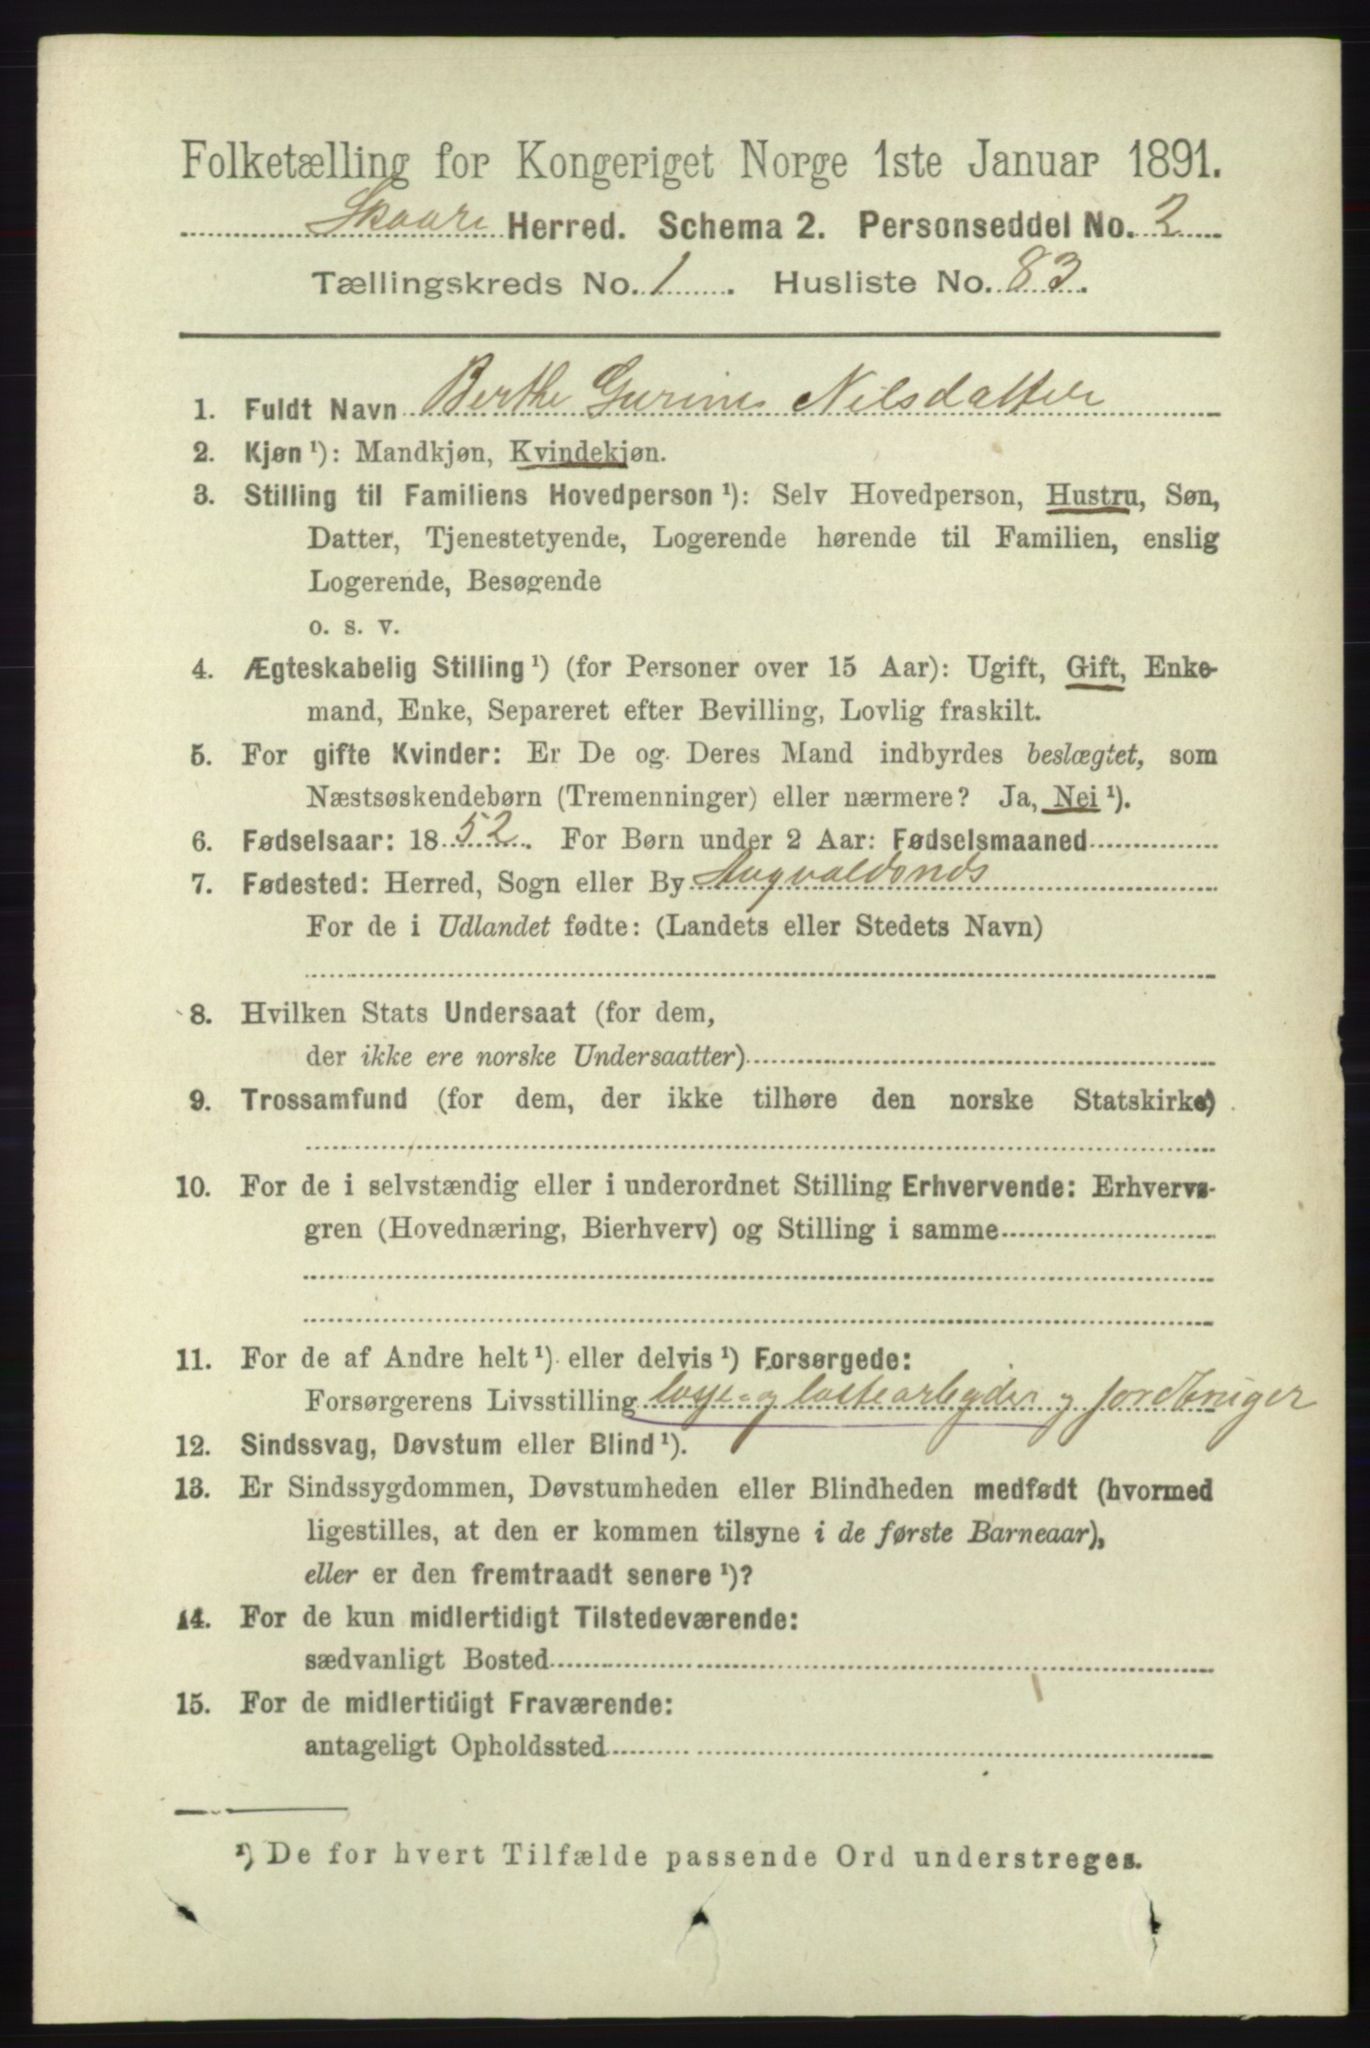 Folketælling for Kongeriget Norge 1ste Januar 1891.
Skaare Herred. Schema 2. Personseddel No. 2
Tællingskreds No. 1. Husliste No. 83.
1. Fuldt Navn Berthe Gurine Nilsdatter
2. Kjøn ¹): Mandkjøn, Kvindekjøn.
3. Stilling til Familiens Hovedperson ¹): Selv Hovedperson, Hustru, Søn,
Datter, Tjenestetyende, Logerende hørende til Familien, enslig
Logerende, Besøgende
o. s. v.
4. Ægteskabelig Stilling ¹) (for Personer over 15 Aar): Ugift, Gift, Enke-
mand, Enke, Separeret efter Bevilling, Lovlig fraskilt.
5. For gifte Kvinder: Er De og Deres Mand indbyrdes beslægtet, som
Næstsøskendebørn (Tremenninger) eller nærmere? Ja, Nei ¹).
6. Fødselsaar: 1852. For Børn under 2 Aar: Fødselsmaaned
7. Fødested: Herred, Sogn eller By Augvaldsnds
For de i Udlandet fødte: (Landets eller Stedets Navn)
8. Hvilken Stats Undersaat (for dem,
der ikke ere norske Undersaatter)
9. Trossamfund (for dem, der ikke tilhøre den norske Statskirke)
10. For de i selvstændig eller i underordnet Stilling Erhvervende: Erhvervs-
gren (Hovednæring, Bierhverv) og Stilling i samme
11. For de af Andre helt ¹) eller delvis ¹) Forsørgede:
Forsørgerens Livsstilling losse- og lastearbeyder og jordbruger
12. Sindssvag, Døvstum eller Blind ¹).
13. Er Sindssygdommen, Døvstumheden eller Blindheden medfødt (hvormed
ligestilles, at den er kommen tilsyne i de første Barneaar),
eller er den fremtraadt senere ¹)?
14. For de kun midlertidigt Tilstedeværende:
sædvanligt Bosted
15. For de midlertidigt Fraværende:
antageligt Opholdssted
¹) De for hvert Tilfælde passende Ord understreges.